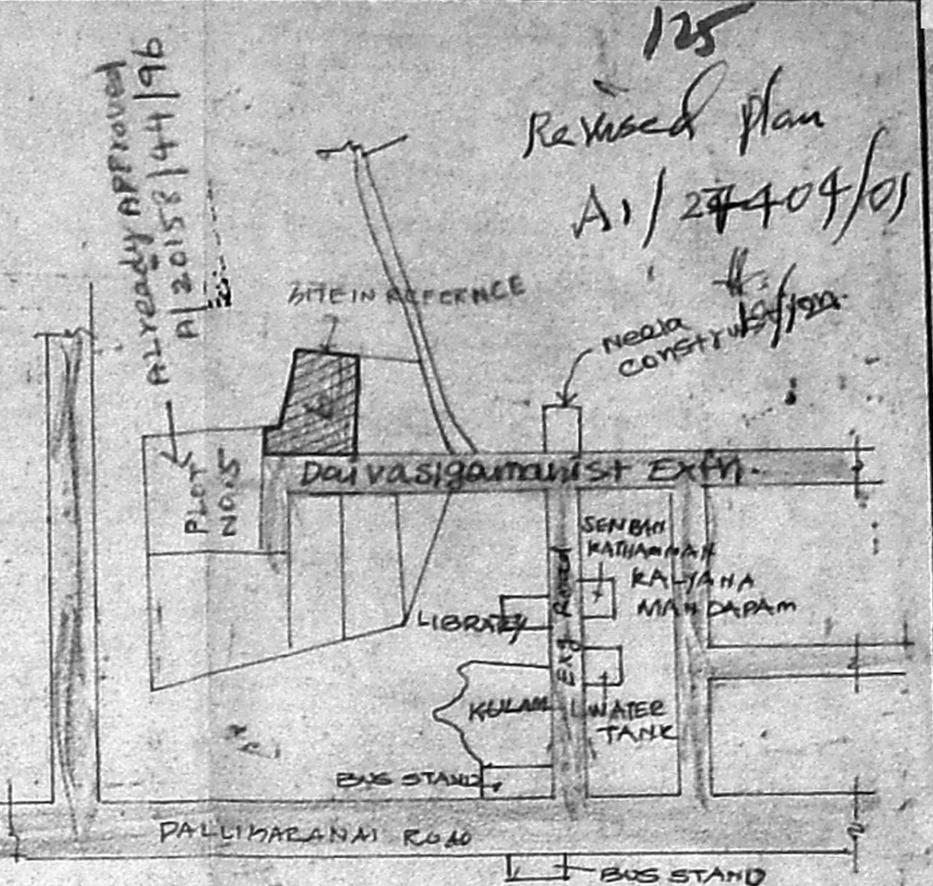 125
Revised plan
A1/27404/01
ALready APProved
A/20158/44/96
SITE IN REFERENCE
Neela
construction
PLOT
NO.15
Daivasigamani St Extn.
SENBAN
KATHAMMAN
KALYANA
MANDAPAM
Exg Road
LIBRARY
KULAM
WATER
TANK
BUS STAND
PALLIKARANAI ROAD
BUS STAND